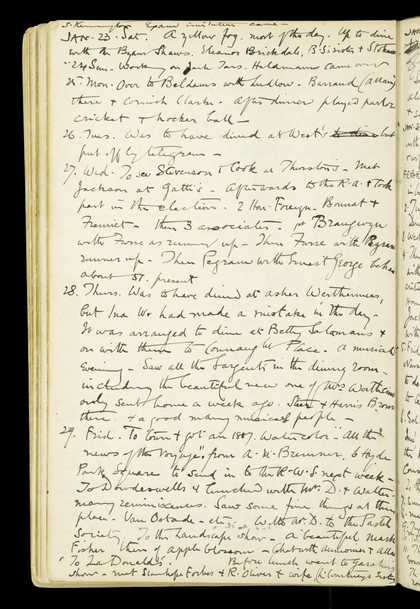 S. Kensington
JAN. 23. Sat. A yellow fog. most of the day. Up to dine
with the Byam Shaws. Eleanor Brickdale,
24 Sun. Working on Jack Tars. Haldimann came over
25. Mon. Over to Beldens with Ludlow. Barraud (Allan)
there & Cornish Clarke. After dinner played parlor
cricket & hockey ball —
26. Tues. Was to have dined at West's but
put off by telegram —
27. Wed. To see Stevenson & look at Thurston's. Met
Jackson at Gatti's. Afterwards to the R.A. & took
part in the election. 2 Hon. Foreign. Bonnat &
Fremiet — then 3 associates. 1st Brangwyn
with Furse as runner up — Then Furse with Pegram
runner up — Then Pegram with Ernest George
about 51. present
28. Thurs. Was to have dined at Asher Wertheimers,
but Ina W. had made a mistake in the day —
It was arranged to dine at Betty Salomans &
on with them to Connaught Place. A musical
evening — Saw all the Sargents in the dining room —
including the beautiful new one of Mrs Wertheimer
only sent home a week ago. &
there & a good many musical people —
29. Frid. To town & got an 1807. Watercolor "All the
news of the Voyage", from A. N. Bremner, 6 Hyde
Park Square to send in to the R.W.S. next week —
To Dowdeswells & lunched with Mr. D. & Walter —
many reminiscences. Saw some fine things at their
place. Van Ostade — etc — With Mr. D. to the Pastel
Society. To the landscape show — A beautiful Mark
Fisher, there of apple blossom —
"To La Donald's. Before lunch went to
show — met Stanhope Forbes & R. Oliver & wife